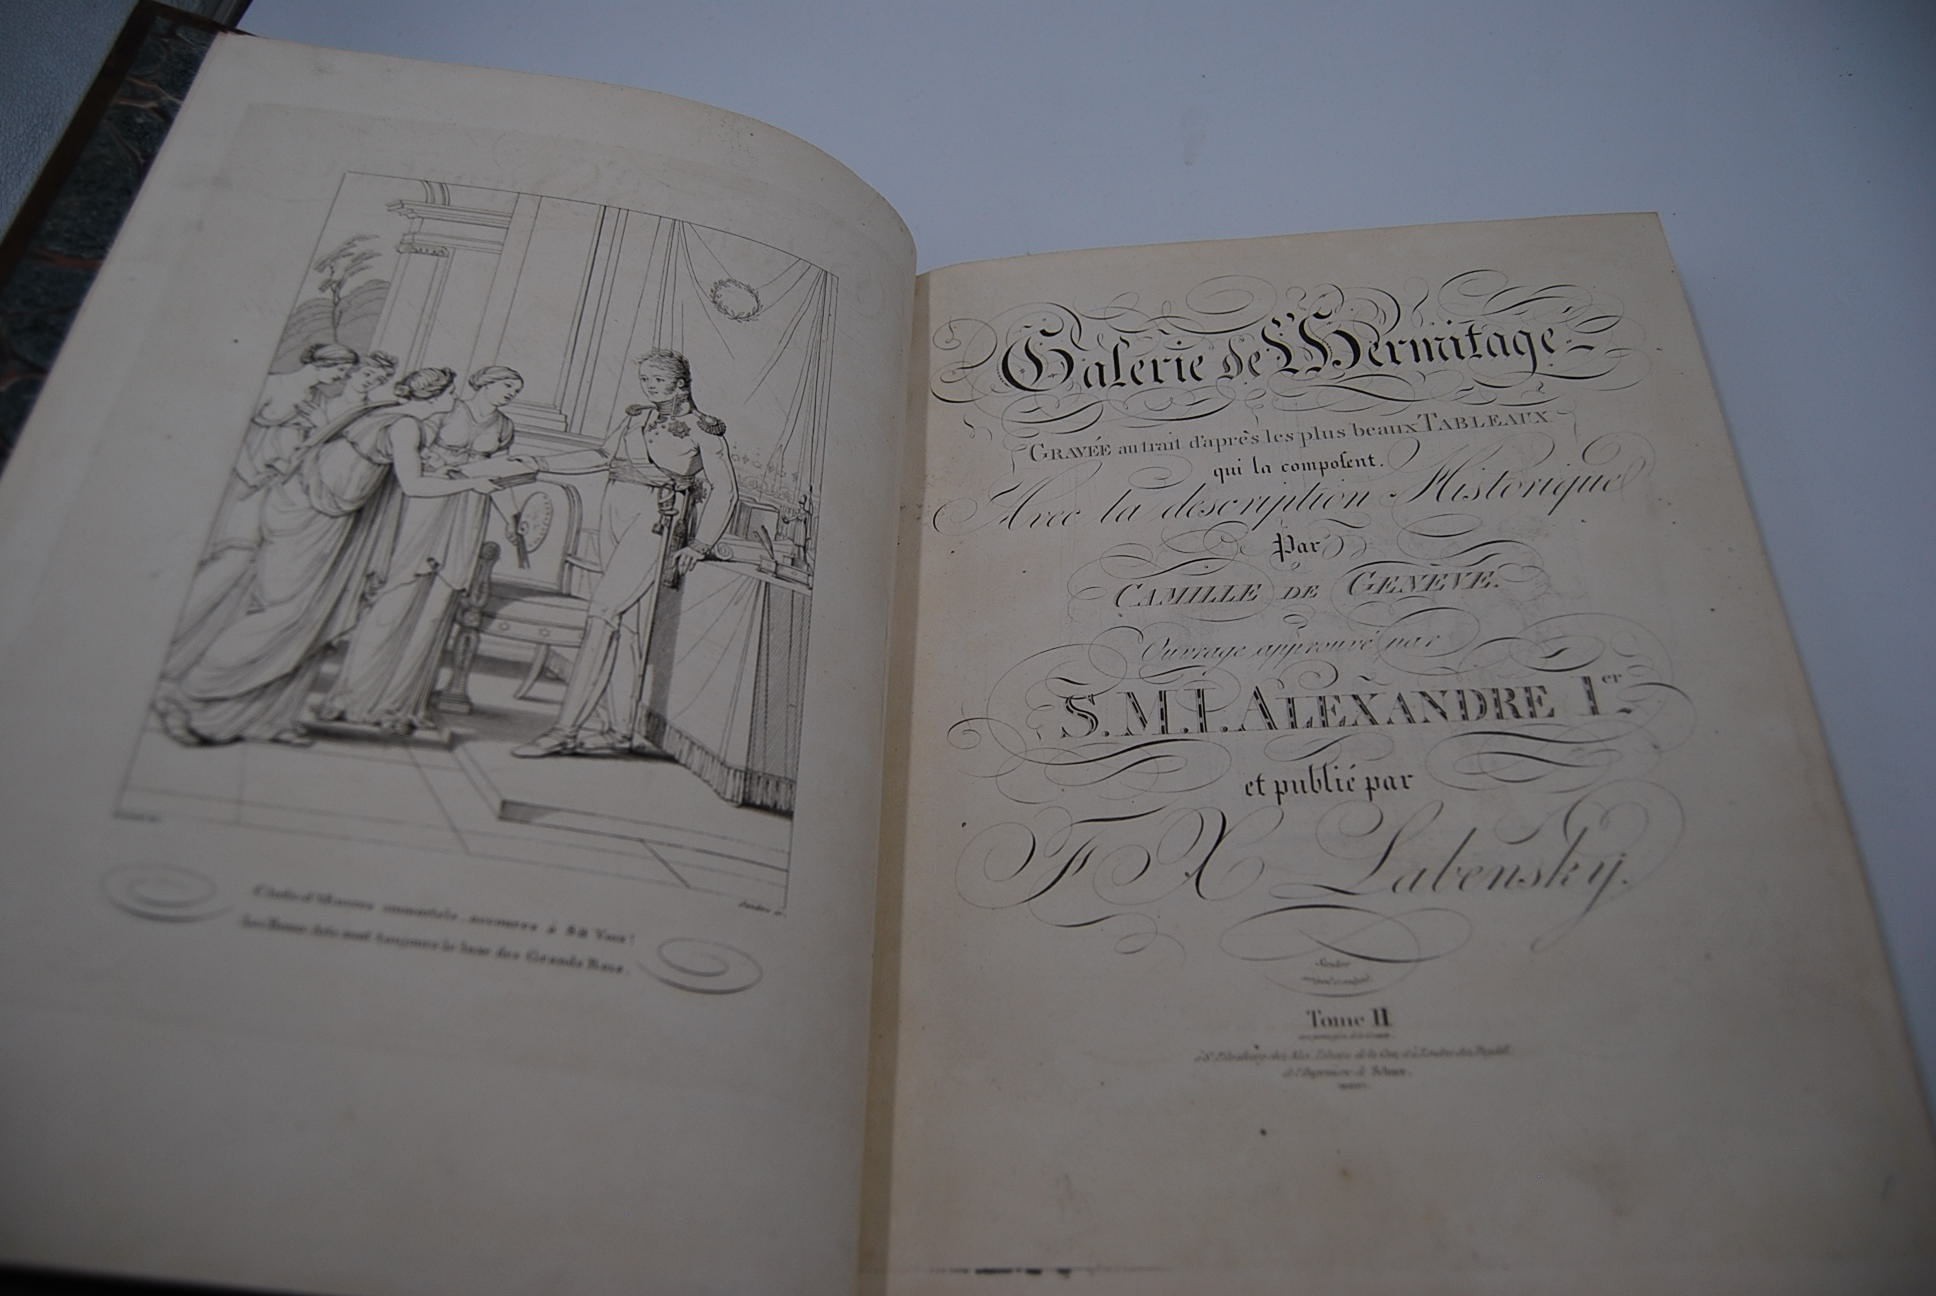 Chefs-d'Œuvres immortels, accourez à sa Voix!
Les Beaux-Arts sont toujours le luxe des Grands Rois.
Galerie de l'Hermitage
GRAVÉE au trait d'après les plus beaux TABLEAUX
qui la composent.
Avec la description Historique
Par
CAMILLE DE GENÈVE.
Ouvrage approuvé par
S. M. I. ALEXANDRE I.er
et publié par
F X Labensky.
Tome II